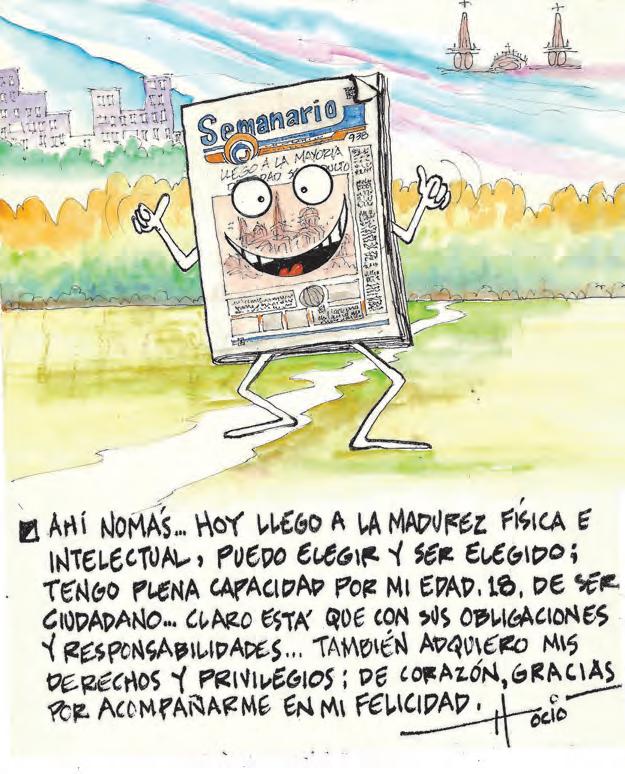 Semanario
938
LLEGO A LA MAYORIA
DE EDAD SOY ADULTO
AHÍ NOMÁS... HOY LLEGO A LA MADUREZ FÍSICA E
INTELECTUAL, PUEDO ELEGIR Y SER ELEGIDO;
TENGO PLENA CAPACIDAD POR MI EDAD, 18, DE SER
CIUDADANO... CLARO ESTÁ QUE CON SUS OBLIGACIONES
Y RESPONSABILIDADES... TAMBIÉN ADQUIERO MIS
DERECHOS Y PRIVILEGIOS; DE CORAZÓN, GRACIAS
POR ACOMPAÑARME EN MI FELICIDAD.
Hocio